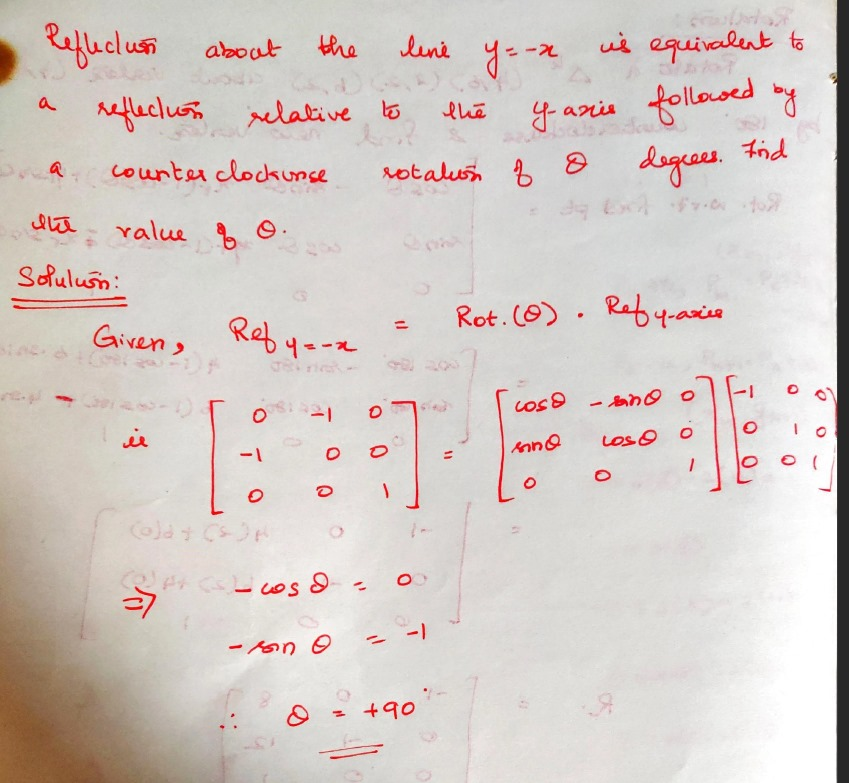 Reflection about the line y=-x is equivalent to
a reflection relative to the y-axis followed by
a counter clockwise rotation of θ degrees. Find
the value of θ.
Solution:
Given, Ref y=-x = Rot.(θ) . Ref y-axis
ie [0 -1 0; -1 0 0; 0 0 1] = [cosθ -sinθ 0; sinθ cosθ 0; 0 0 1] [-1 0 0; 0 1 0; 0 0 1]
⇒ -cosθ = 0
-sinθ = -1
∴ θ = +90°